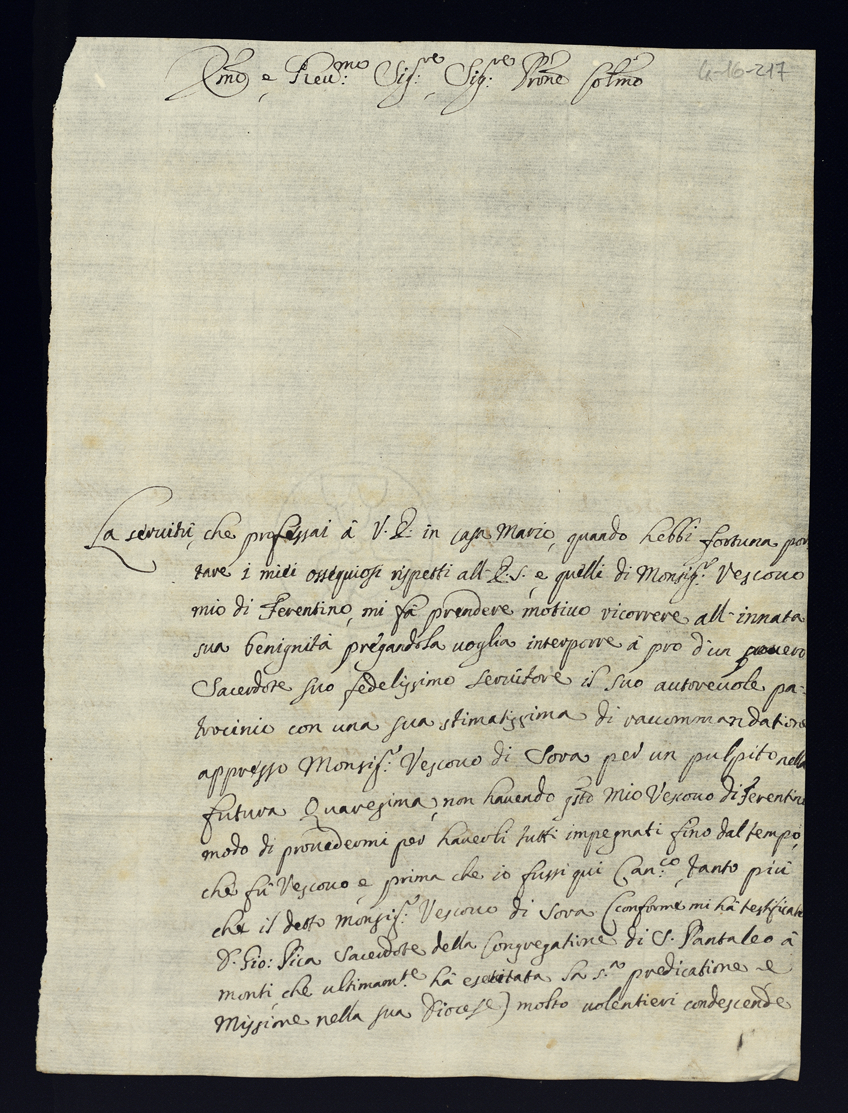 Ill.mo e Reu.mo Sig.re Sig.re Prone Col.mo
4-16-217
La seruitù, che professai à V.S. in casa Mario, quando hebbi fortuna por
tare i miei ossequiosi rispetti all-E.S. e quelli di Monsig.r Vescouo
mio di Ferentino, mi fà prendere motiuo ricorrere all-innata
sua benignità pregandola uoglia interporre à pro d'un pouero
Sacerdote suo fedelissimo seruitore il suo autoreuole pa-
trocinio con una sua stimatissima di raccommandatione
appresso Monsig.r Vescouo di Sora per un pulpito nella
futura Quaresima, non hauendo q.sto mio Vescouo di Ferentino
modo di prouedermi per hauerli tutti impegnati fino dal tempo,
che fù Vescouo e prima che io fussi qui Can.co, tanto più
che il detto Monsig.r Vescouo di Sora (conforme mi hà testificato
D. Gio: Pica Sacerdote della Congregatione di S. Pantaleo à
monti, che ultimam.te hà esercitata la s.ta predicatione e
Missione nella sua Diocese) molto uolentieri condescende